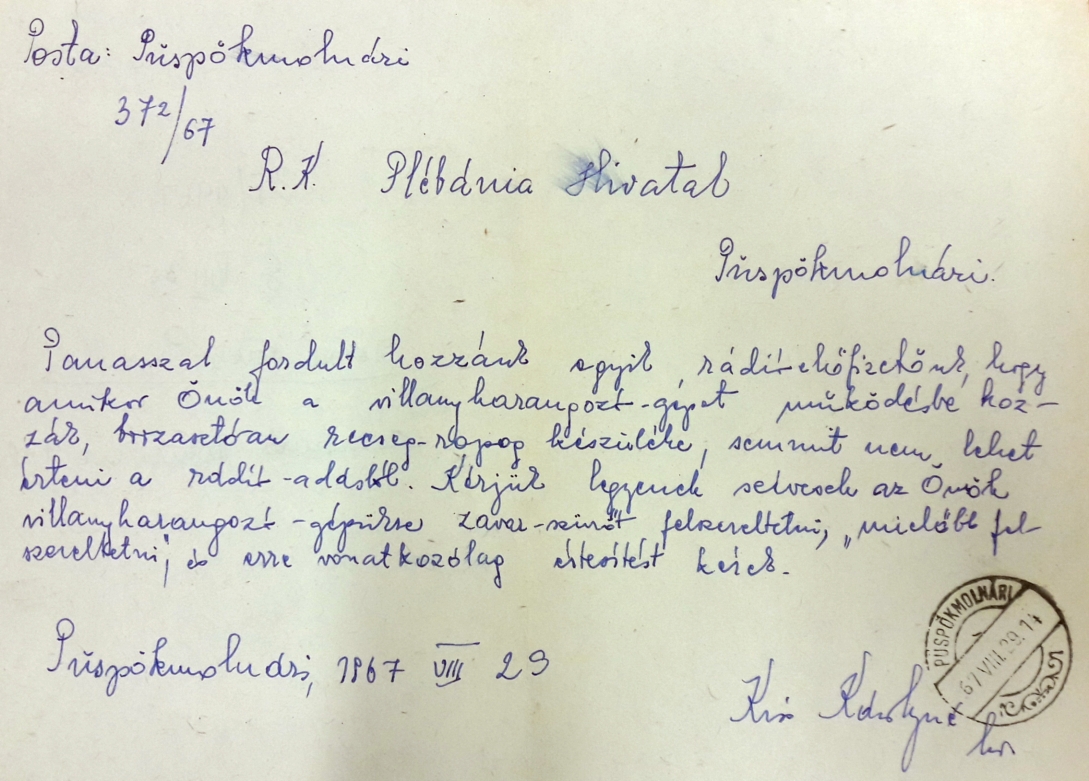 Posta: Püspökmolnári
372/67
R.K. Plébánia Hivatal
Püspökmolnári.
Panasszal fordult hozzánk egyik rádió-előfizetőnk, hogy
amikor Önök a villanyharangozó-gépet működésbe hoz-
zák, borzasztóan recseg-ropog készüléke, semmit nem lehet
érteni a rádió-adásból. Kérjük legyenek szivesek az Önök
villanyharangozó-gépükre zavar-szűrőt felszereltetni, "mielőbb fel-
szereltetni", és erre vonatkozólag értesítést kérek.
Püspökmolnári, 1967 VIII 29
Kiss Károlyné
PÜSPÖKMOLNÁRI
67 VIII.29.14